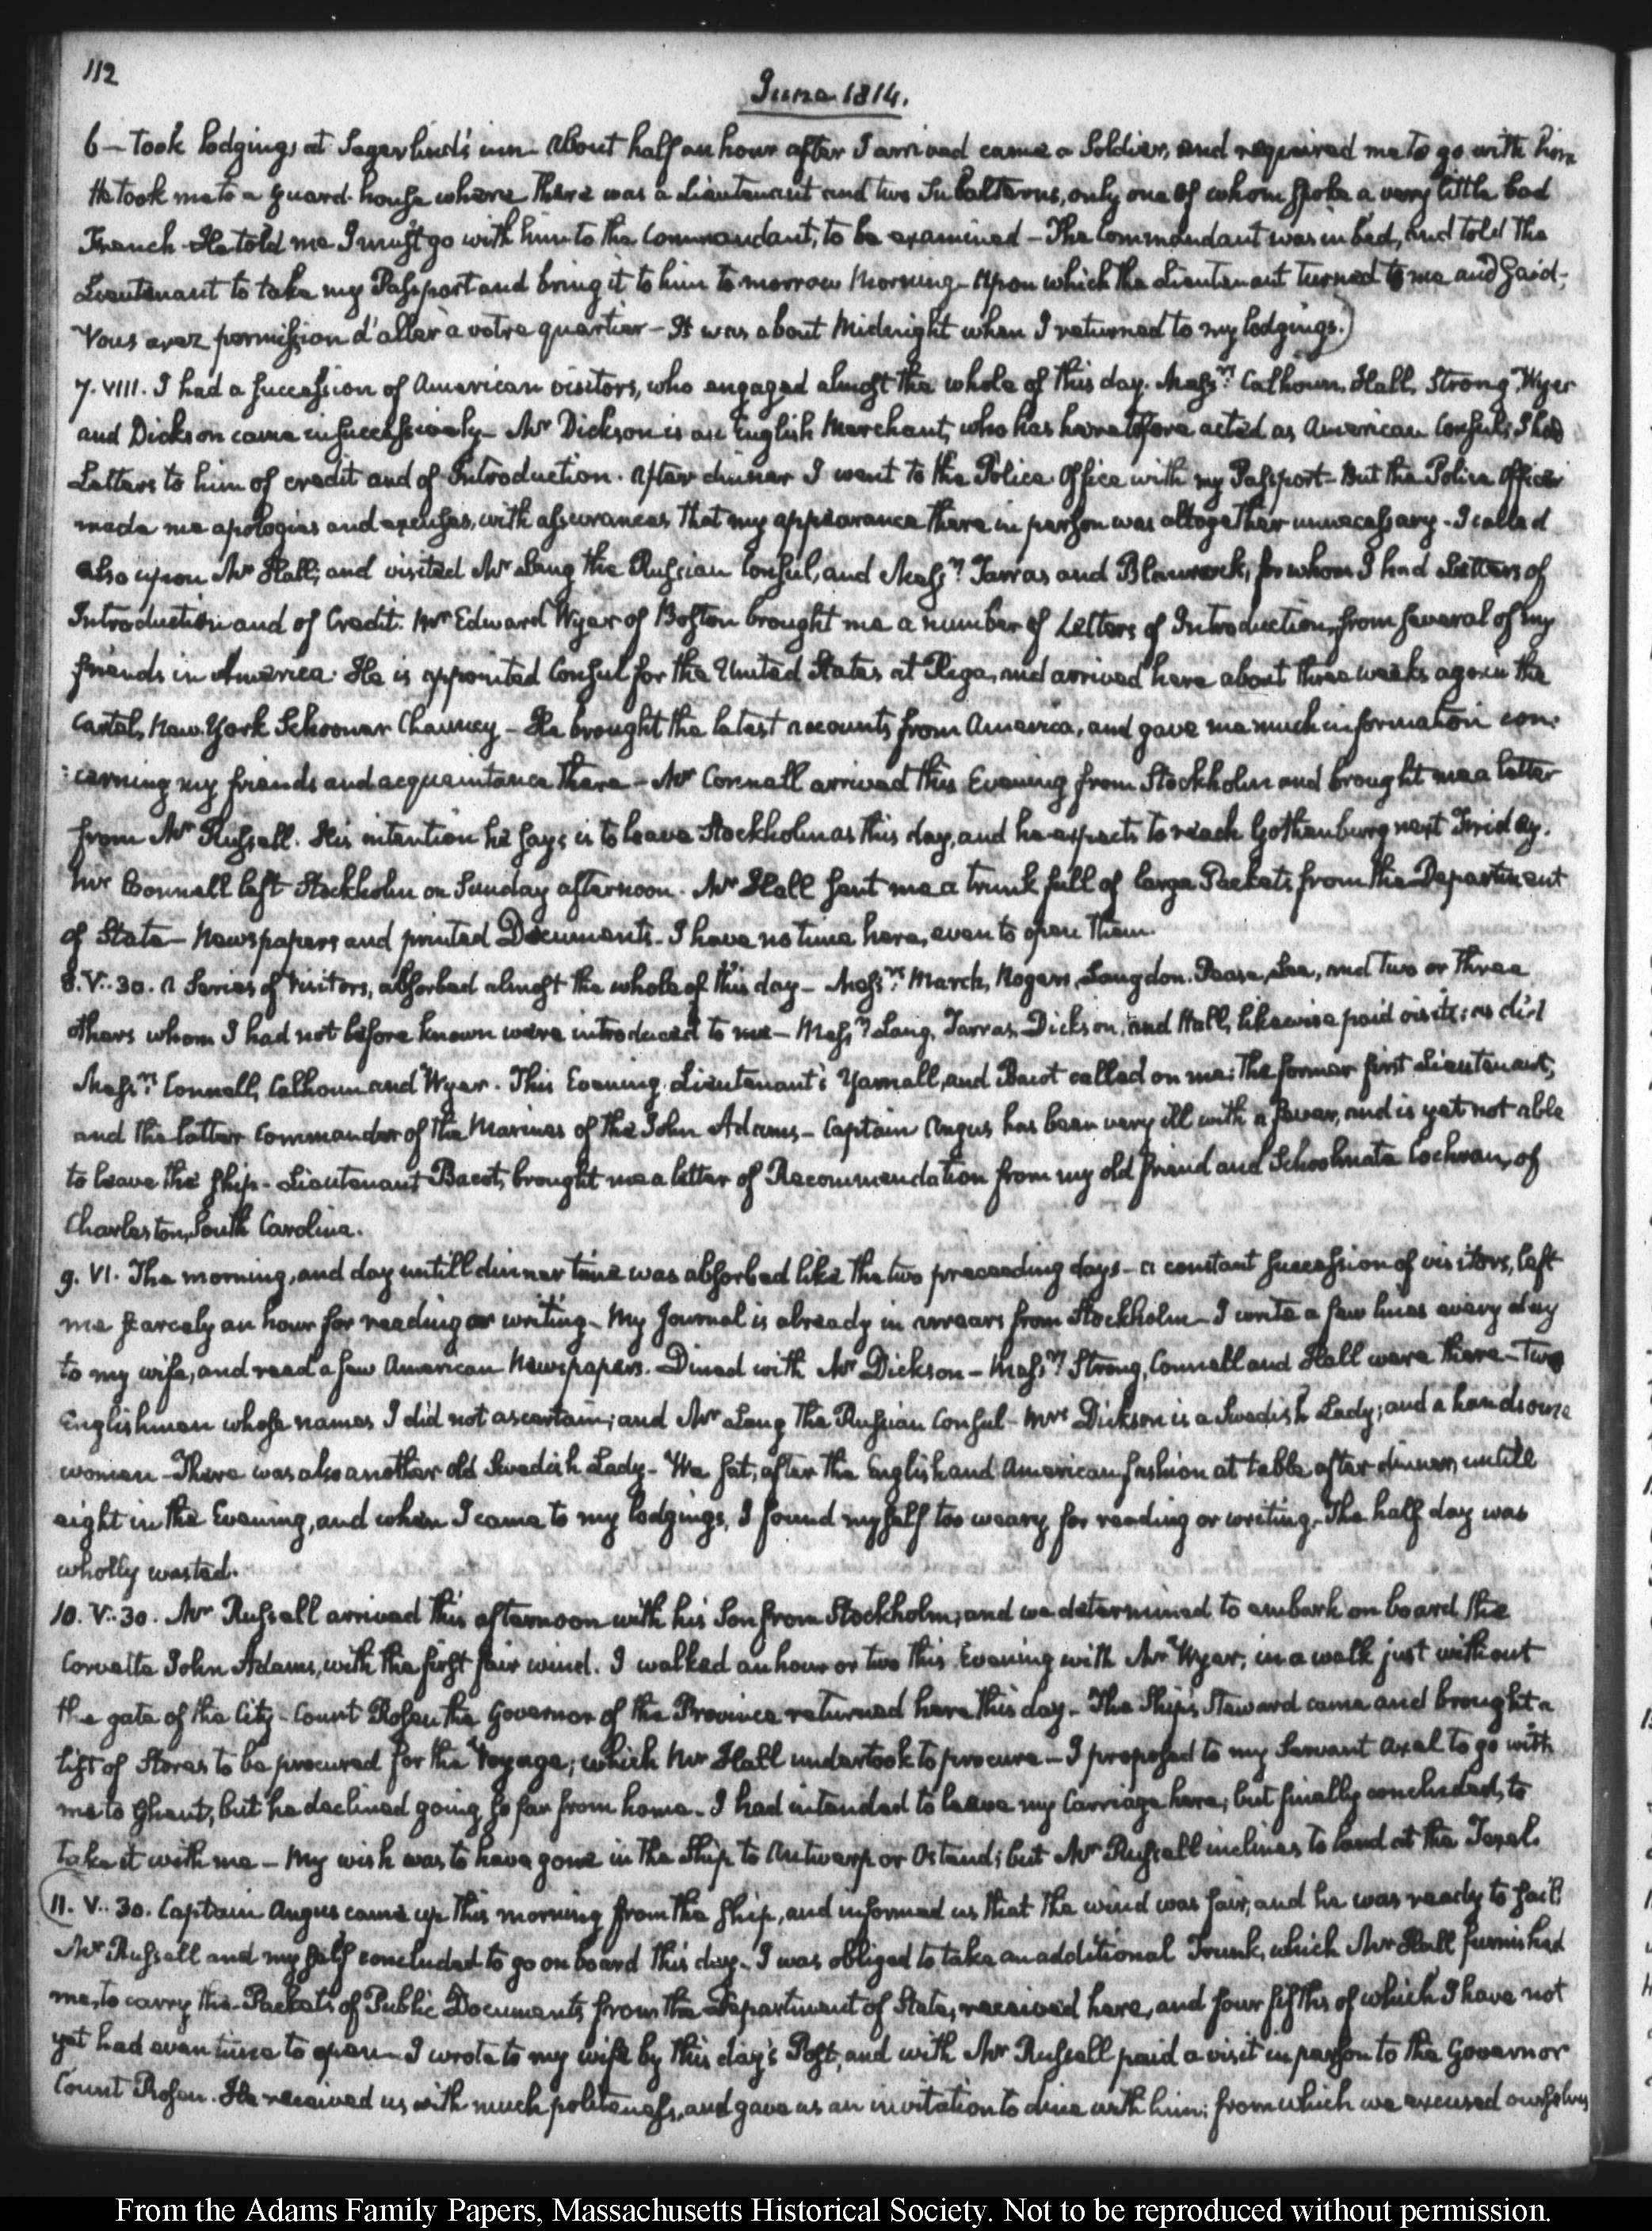 112
June 1814.
6 — Took lodgings at Segerlind's inn. About half an hour after I arrived came a Soldier, and required me to go with him
He took me to a guard-house where there was a Lieutenant and two Subalterns, only one of whom spoke a very little bad
French - He told me I must go with him to the Commandant, to be examined — The Commandant was in bed, and told the
Lieutenant to take my Passport and bring it to him to morrow Morning — Upon which the Lieutenant turned to me and said,
Vous avez permission d'aller à votre quartier — It was about Midnight when I returned to my lodgings.)
7. VIII. I had a succession of American visitors, who engaged almost the whole of this day. Messrs. Calhoun, Hall, Strong Wyer
and Dickson came in successively — Mr Dickson is an English Merchant, who has heretofore acted as American Consul; I had
Letters to him of credit and of Introduction. After dinner I went to the Police Office with my Passport — But the Police Officer
made me apologies and excuses, with assurances that my appearance there in person was altogether unnecessary. I called
also upon Mr Hall, and visited Mr Lang the Russian Consul, and Messrs. Tarras and for whom I had Letters of
Introduction and of Credit. Mr Edward Wyer of Boston brought me a number of Letters of Introduction, from several of my
friends in America. He is appointed Consul for the United States at Riga, and arrived here about three weeks ago in the
Cartel, New-York Schooner Chauncy — He brought the latest accounts from America, and gave me much information con:
:cerning my friends and acquaintance there — Mr Connell arrived this Evening from Stockholm and brought me a letter
from Mr Russell. His intention he says is to leave Stockholm as this day, and he expects to reach Gothenburg next Friday.
Mr Connell left Stockholm on Sunday afternoon. Mr Hall sent me a trunk full of large Packets from the Department
of State — Newspapers and printed Documents. I have no time here, even to open them.
8. V:30. A Series of Visitors, absorbed almost the whole of this day — Messrs. March, Rogers, Langdon. Pease, Lee, and two or three
others whom I had not before known were introduced to me — Messrs. Lang, Tarras, Dickson, and Hall, likewise paid visits; as did
Messrs. Connell, Calhoun and Wyer. This Evening, Lieutenant's Yarnall, and Bacot called on me; the former first Lieutenant,
and the latter Commander of the Marines of the John Adams — Captain Angus has been very ill with a fever, and is yet not able
to leave the ship. Lieutenant Bacot, brought me a letter of Recommendation from my old friend and Schoolmate Cochran, of
Charleston, South Carolina.
9. VI. The morning, and day untill dinner time was absorbed like the two preceeding days — a constant succession of visitors, left
me scarcely an hour for reading or writing — My Journal is already in arrears from Stockholm — I write a few lines every day
to my wife, and read a few American Newspapers. Dined with Mr Dickson — Messrs. Strong, Connell and Hall were there — Two
Englishmen whose names I did not ascertain; and Mr Lang the Russian Consul — Mrs Dickson is a Swedish Lady; and a handsome
woman — There was also another old Swedish Lady — We sat, after the English and American fashion at table after dinner, untill
eight in the Evening, and when I came to my lodgings, I found myself too weary for reading or writing. The half day was
wholly wasted.
10. V:30. Mr Russell arrived this afternoon with his Son from Stockholm; and we determined to embark on board the
Corvette John Adams, with the first fair wind. I walked an hour or two this Evening with Mr Wyer, in a walk just without
the gate of the City — Count Rosen the Governor of the Province returned here this day. The Ship's Steward came and brought a
list of Stores to be procured for the Voyage; which Mr Hall undertook to procure — I proposed to my Servant Axel to go with
me to Ghent, but he declined going so far from home — I had intended to leave my Carriage here; but finally concluded, to
take it with me — My wish was to have gone in the Ship to Antwerp or Ostend; but Mr Russell inclines to land at the Texel.
11. V:30. Captain Angus came up this morning from the ship, and informed us that the wind was fair, and he was ready to sail.
Mr Russell and myself concluded to go on board this day. I was obliged to take an additional Trunk, which Mr Hall furnished
me, to carry the Packets of Public Documents from the Department of State, received here, and four fifths of which I have not
yet had even time to open — I wrote to my wife by this day's Post, and with Mr Russell paid a visit in person to the Governor
Count Rosen. He received us with much politeness, and gave us an invitation to dine with him; from which we excused ourselves
From the Adams Family Papers, Massachusetts Historical Society. Not to be reproduced without permission.